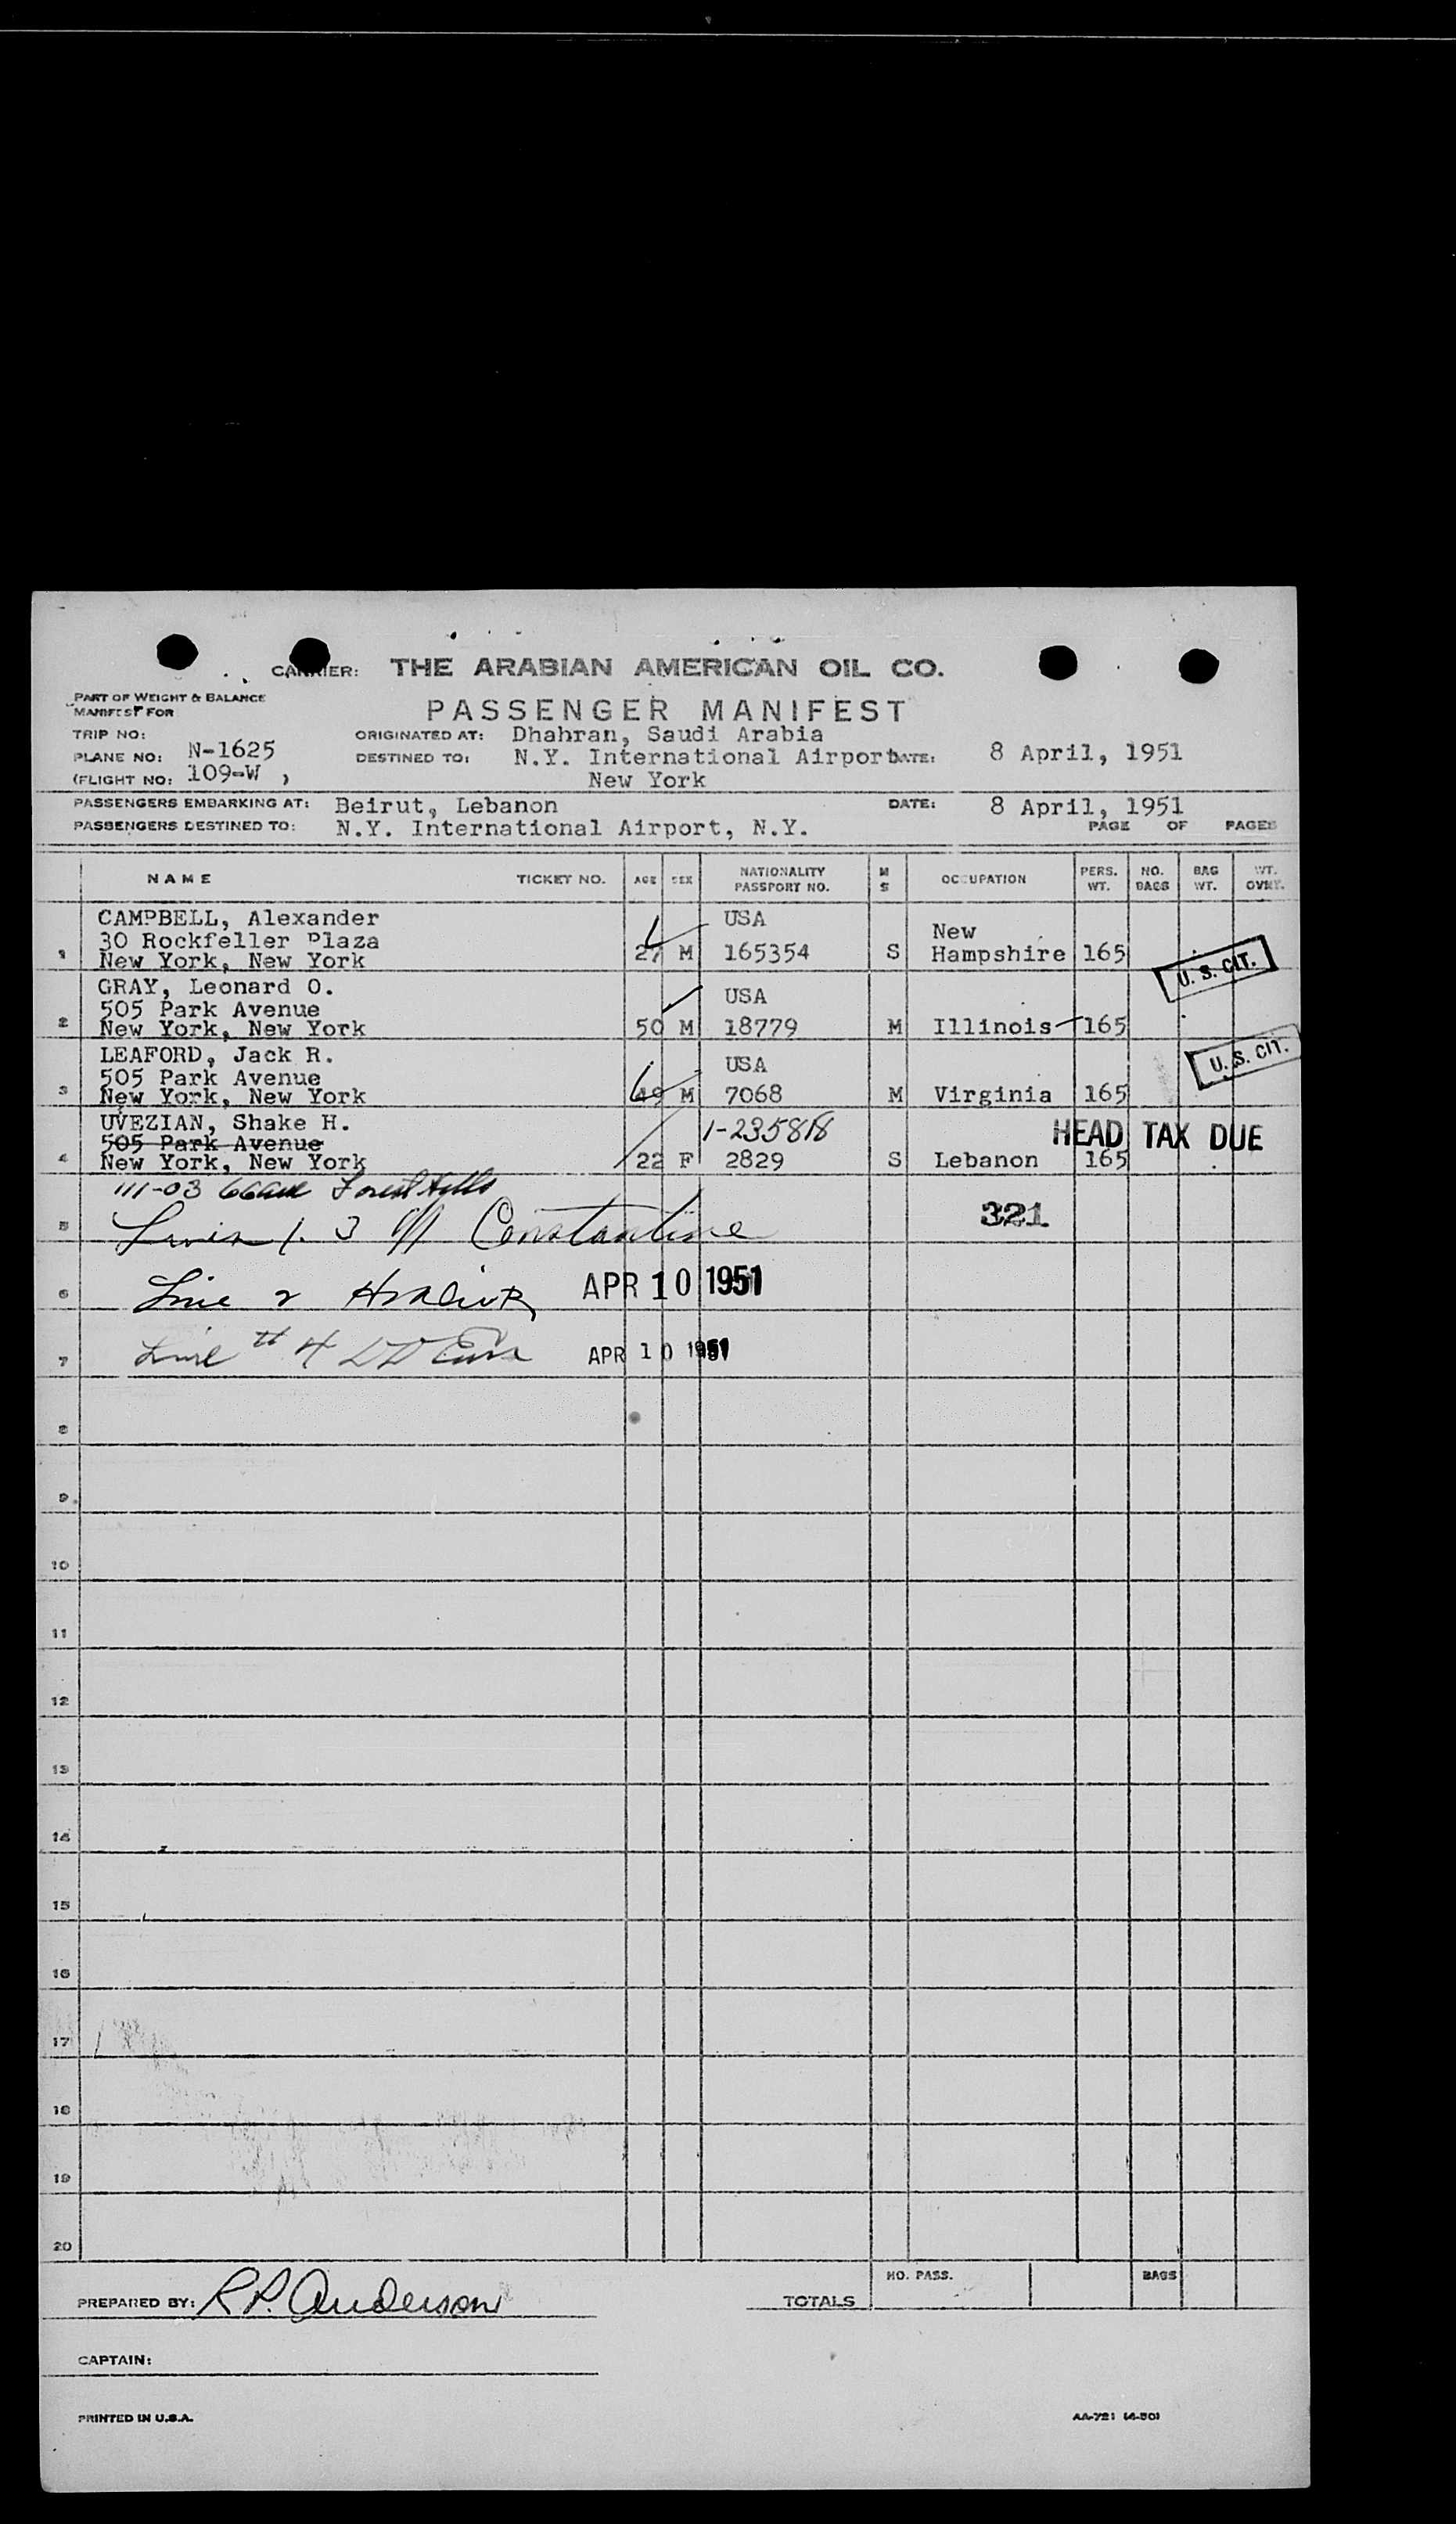 CARRIER: THE ARABIAN AMERICAN OIL CO.
PART OF WEIGHT & BALANCE
MANIFEST FOR
PASSENGER MANIFEST
TRIP NO:
ORIGINATED AT: Dhahran, Saudi Arabia
PLANE NO: N-1625
DESTINED TO: N.Y. International Airport DATE: 8 April, 1951
(FLIGHT NO: 109-W )
New York
PASSENGERS EMBARKING AT: Beirut, Lebanon DATE: 8 April, 1951
PASSENGERS DESTINED TO: N.Y. International Airport, N.Y. PAGE OF PAGES
NAME TICKET NO. AGE SEX NATIONALITY PASSPORT NO. M S OCCUPATION PERS. WT. NO. BAGS BAG WT. WT. OVNT.
CAMPBELL, Alexander USA
30 Rockfeller Plaza New
1 New York, New York 27 M 165354 S Hampshire 165 U. S. CIT.
GRAY, Leonard O. USA
505 Park Avenue
2 New York, New York 50 M 18779 M Illinois 165
LEAFORD, Jack R. USA U. S. CIT.
505 Park Avenue
3 New York, New York 49 M 7068 M Virginia 165
UVEZIAN, Shake H. 1-235818 HEAD TAX DUE
505 Park Avenue
4 New York, New York 22 F 2829 S Lebanon 165
111-03 66 ave Forest Hills
5 1. 3 Constantine 321
6 Line 2 APR 10 1951
7 Line # 4 APR 10 1951
8
9
10
11
12
13
14
15
16
17
18
19
20
PREPARED BY: R.P. Anderson TOTALS NO. PASS. BAGS
CAPTAIN:
PRINTED IN U.S.A. AA-721 (4-50)